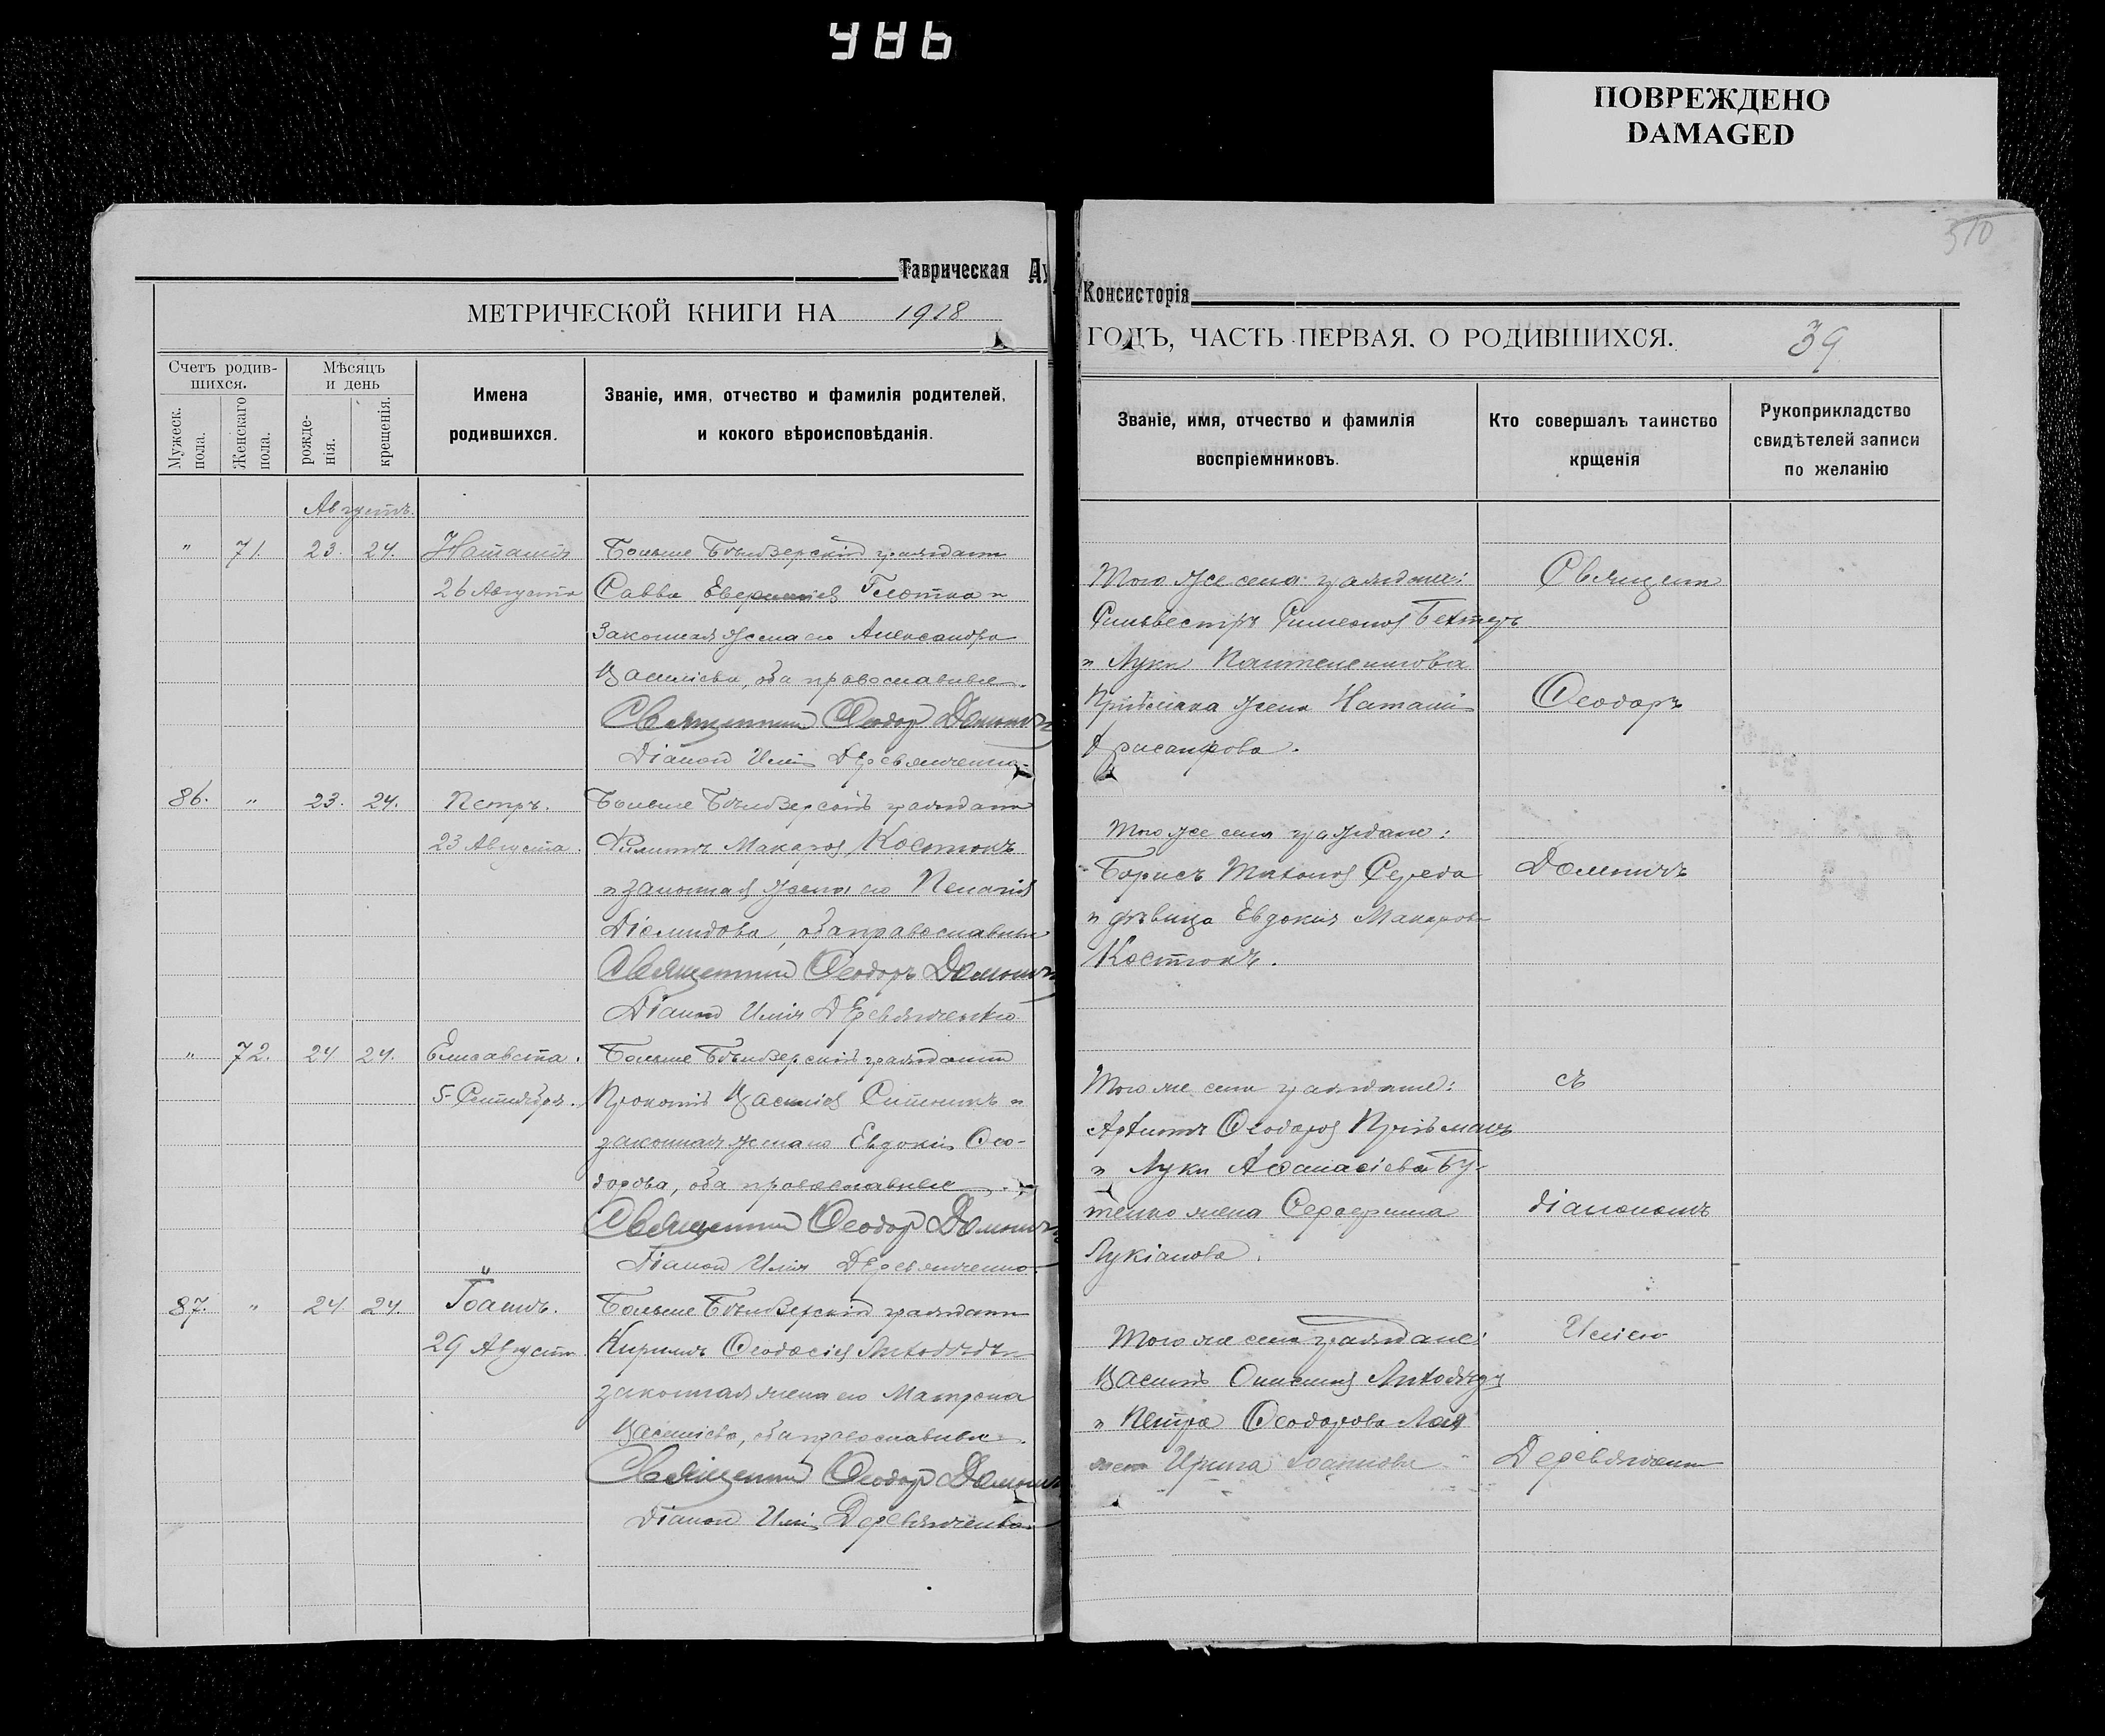 486
ПОВРЕЖДЕНО
DAMAGED
510
Таврическая Ду
Консисторія
МЕТРИЧЕСКОЙ КНИГИ НА 1918
ГОДЪ, ЧАСТЬ ПЕРВАЯ, О РОДИВШИХСЯ.
39
Счетъ родив-
шихся.
Мужеск. пола.
Женскаго пола.
Мѣсяцъ
и день
рожде-
нія.
крещенія.
Имена
родившихся.
Званіе, имя, отчество и фамилія родителей,
и кокого вѣроисповѣданія.
Званіе, имя, отчество и фамилія
воспріемниковъ.
Кто совершалъ таинство
крщенія
Рукоприкладство
свидѣтелей записи
по желанію
Августъ.
" 71. 23. 24. Наталія Больше Бѣлозерскій гражданин
26 Августа Савва Глотка и
Законная жена его Александра
Василіева, оба православные.
Священник Ѳеодор
Діакон Илія Деревянченко
Того же села граждане:
Сильвестръ Симеонов Бехтеръ
и Луки Пантелеимонова
жена Наталія
Хрисанфова.
86. " 23. 24. Петръ. Больше Бѣлозерскій гражданин
23 Августа. Филиппъ Макаров Костюкъ
и законная жена его Пелагія
Діомидова, оба православные
Священник Ѳеодоръ
Діакон Илія Деревянченко
Того же села граждане:
Борисъ Тихонов Середа
и дѣвица Евдокия Макарова
Костюкъ.
" 72. 24 24. Елисавета. Больше Бѣлозерскій гражданин
5 Сентября. Прокопій Василіев и
законная жена его Евдокія Ѳео-
дорова, оба православные.
Священник Ѳеодор
Діакон Илія Деревянченко
Того же села граждане:
Ѳеодоров
и Луки Аѳанасіева Бу-
тенко жена Серафима
Лукіанова.
87. " 24 24. Іоаннъ. Больше Бѣлозерскій гражданин
29 Августа. Кириллъ Ѳеодосіев Лиходѣдъ и
законная жена его Матрона
Василіева, оба православные.
Священник Ѳеодор
Діакон Илія Деревянченко
Того же села граждане:
Василій Лиходѣдъ
и Петра Ѳеодорова
жена Ирина Іоаннова
Священник
Ѳеодоръ
съ
діакономъ
Иліею
Деревянченко